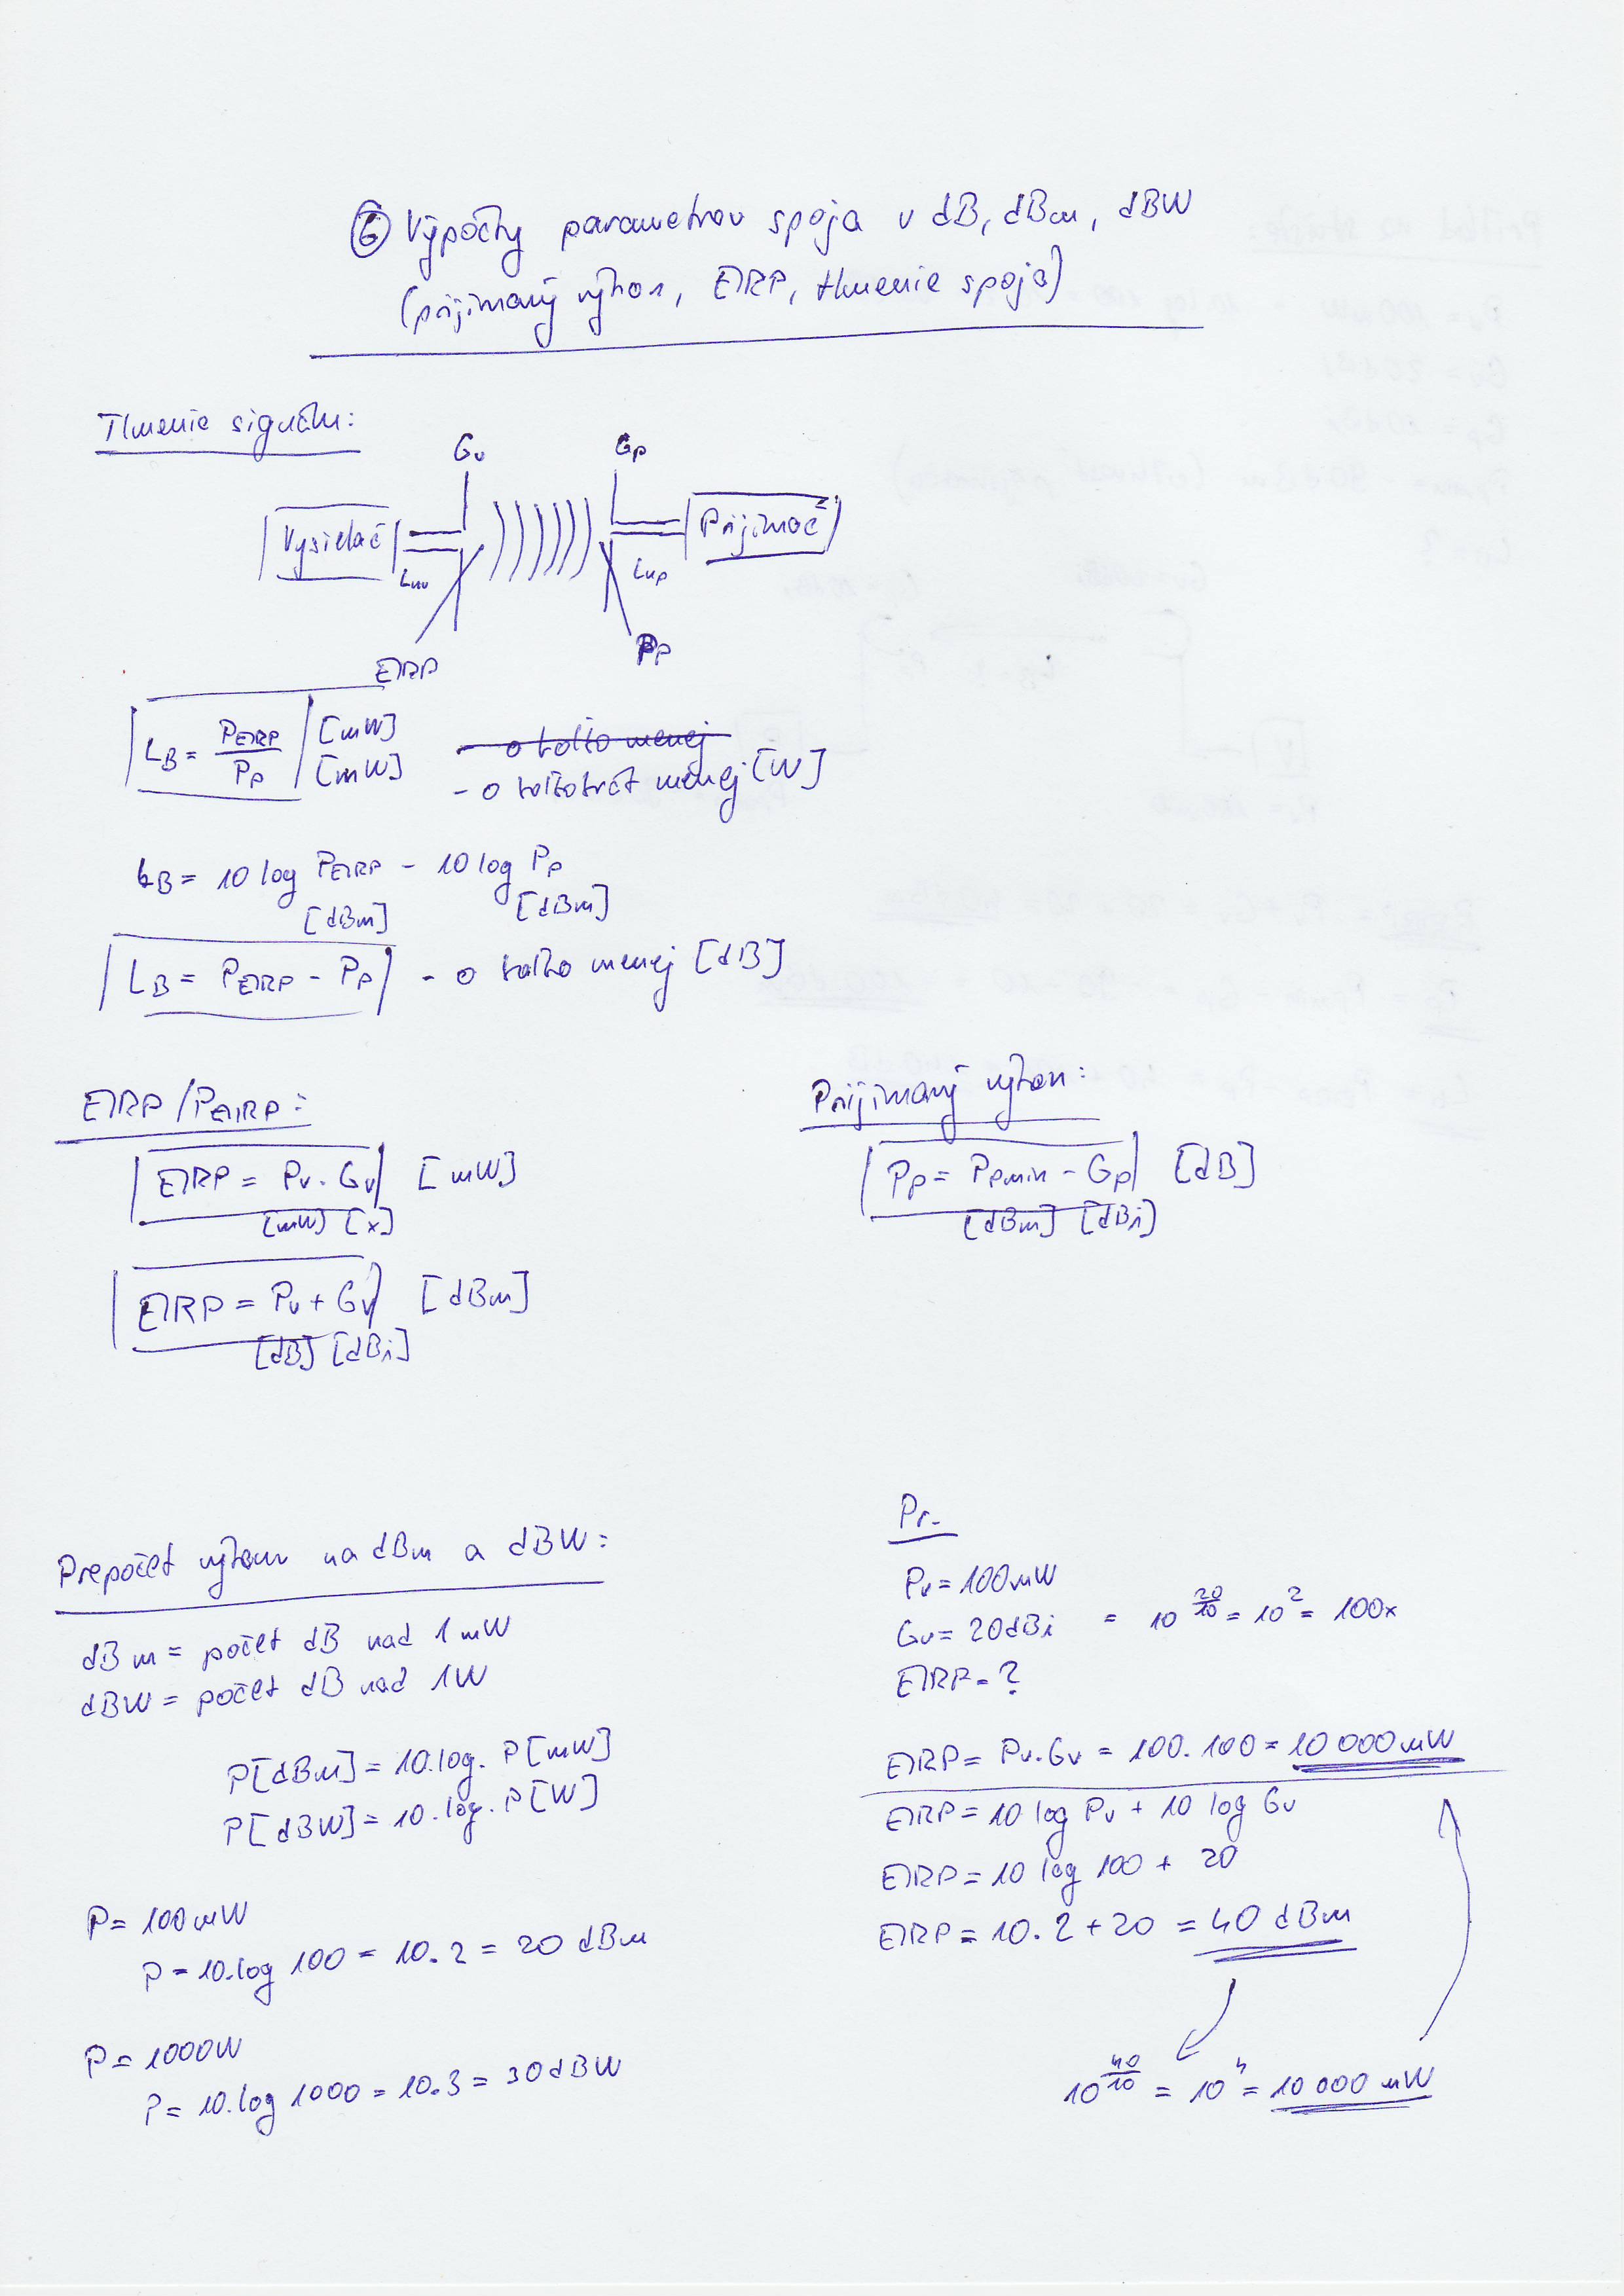 ⑥ Výpočty parametrov spoja v dB, dBm, dBW
(prijímaný výkon, EIRP, tlmenie spoja)
Tlmenie signálu:
Gv Gp
Vysielač Prijímač
Luv Lup
EIRP Pp
LB = PEIRP / Pp [mW] [mW]
- o toľko menej
- o toľkokrát menej [W]
LB = 10 log PEIRP - 10 log Pp
[dBm] [dBm]
LB = PEIRP - Pp - o toľko menej [dB]
EIRP / PEIRP:
EIRP = Pv . Gv [mW]
[mW] [x]
EIRP = Pv + Gv [dBm]
[dB] [dBi]
Prijímaný výkon:
Pp = Ppmin - Gp [dB]
[dBm] [dBi]
Prepočet výkonu na dBm a dBW:
dBm = počet dB nad 1mW
dBW = počet dB nad 1W
P[dBm] = 10.log. P[mW]
P[dBW] = 10.log. P[W]
P = 100mW
P = 10.log 100 = 10.2 = 20 dBm
P = 1000W
P = 10.log 1000 = 10.3 = 30dBW
Pr.
Pv = 100mW
Gv = 20dBi = 10^(20/10) = 10^2 = 100x
EIRP = ?
EIRP = Pv.Gv = 100.100 = 10 000mW
EIRP = 10 log Pv + 10 log Gv
EIRP = 10 log 100 + 20
EIRP = 10.2 + 20 = 40 dBm
10^(40/10) = 10^4 = 10 000 mW